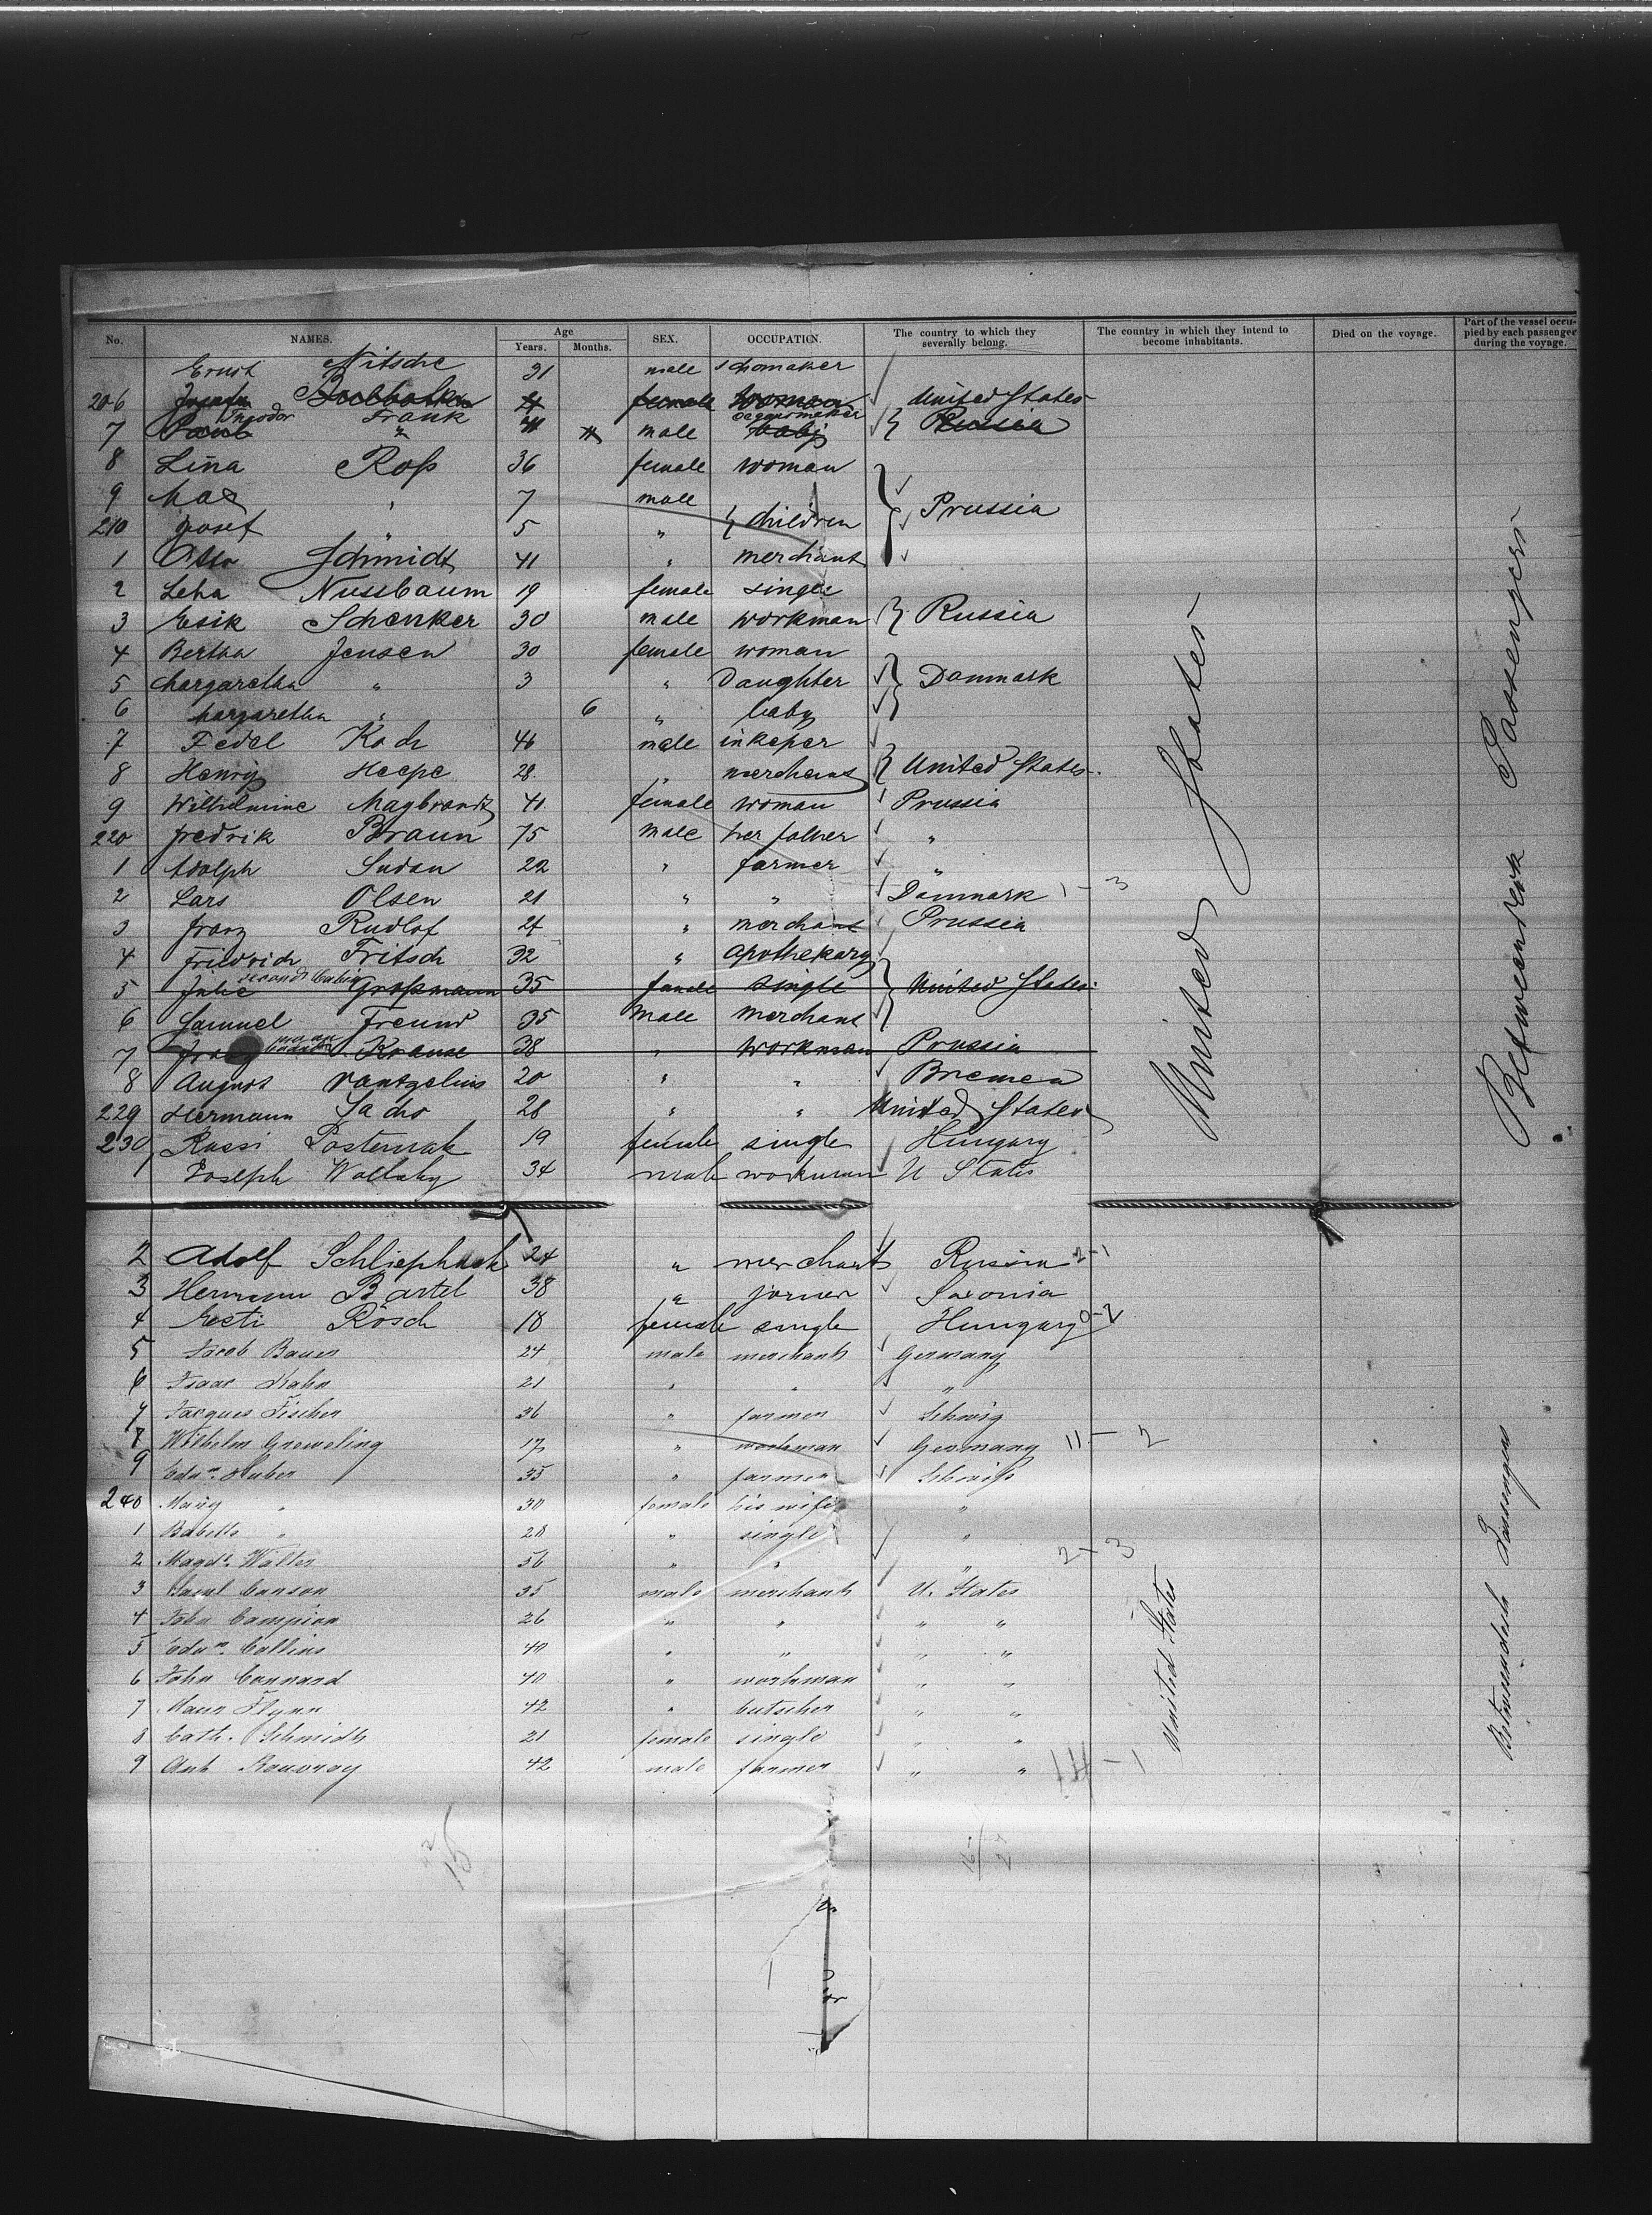 No. NAMES. Age Years. Months. SEX. OCCUPATION. The country to which they severally belong. The country in which they intend to become inhabitants. Died on the voyage. Part of the vessel occupied by each passenger during the voyage.
Ernst Nitsche 31 male schomaker
206 female woman United States
7 Theodor Frank male baby Russia
8 Lina Roß 36 female woman
9 Max " 7 male
210 Josef " 5 " children Prussia
1 Otto Schmidt 41 " merchant
2 Leha Nussbaum 19 female single
3 Esik Schenker 30 male workman Russia
4 Bertha Jensen 30 female woman
5 Margaretha " 3 " Daughter Danmark
6 Margaretha " 6 " baby
7 Fedel Koch 46 male inkeper
8 Henry Heepe 28 " merchant United States
9 Wilhelmine Magbrandt 41 female woman Prussia
220 fredrik Braun 75 male her father "
1 Adolph Sudan 22 " farmer "
2 Lars Olsen 21 " " Danmark 1-3
3 franz Rudlof 24 " merchant Prussia
4 Friedrich Fritsch 32 " apothekary
5 Julie second Cabin Großmann 35 female single United States
6 Samuel Freund 35 Male Merchant
7 franz Krause 38 " workman Prussia
8 August 20 " " Bremen
229 Hermann Sachs 28 " " United States
230 Rossi Posternak 19 female single Hungary
1 Joseph Wollaky 34 male workman U States
United States
Betweendeck Passengers
2 Adolf Schliephack 24 " merchant Russia 2-1
3 Hermann Bartel 38 " joiner Saxonia
4 Rösch 18 female single Hungary 0-2
5 Jacob Bauer 24 male merchant Germany
6 Isaac Kahn 21 " " "
7 Jacques Fischer 36 " farmer Schweiz
8 Wilhelm Greweling 17 " workman Germany 11-2
9 Edu. Huber 35 " farmer Schweiß
240 Mary " 30 female his wife "
1 Babette " 28 " single "
2 Magd. Walter 56 " " " 2-3
3 Saml Canson 35 male merchant U. States
4 John Campion 26 " " " "
5 Edw. Collins 40 " " " "
6 John Connard 40 " workman " "
7 Flynn 42 " butscher " "
8 Cath. Schmidt 21 female single " "
9 Ant 42 male farmer " " 14-1
United States
Betweendeck Passengers